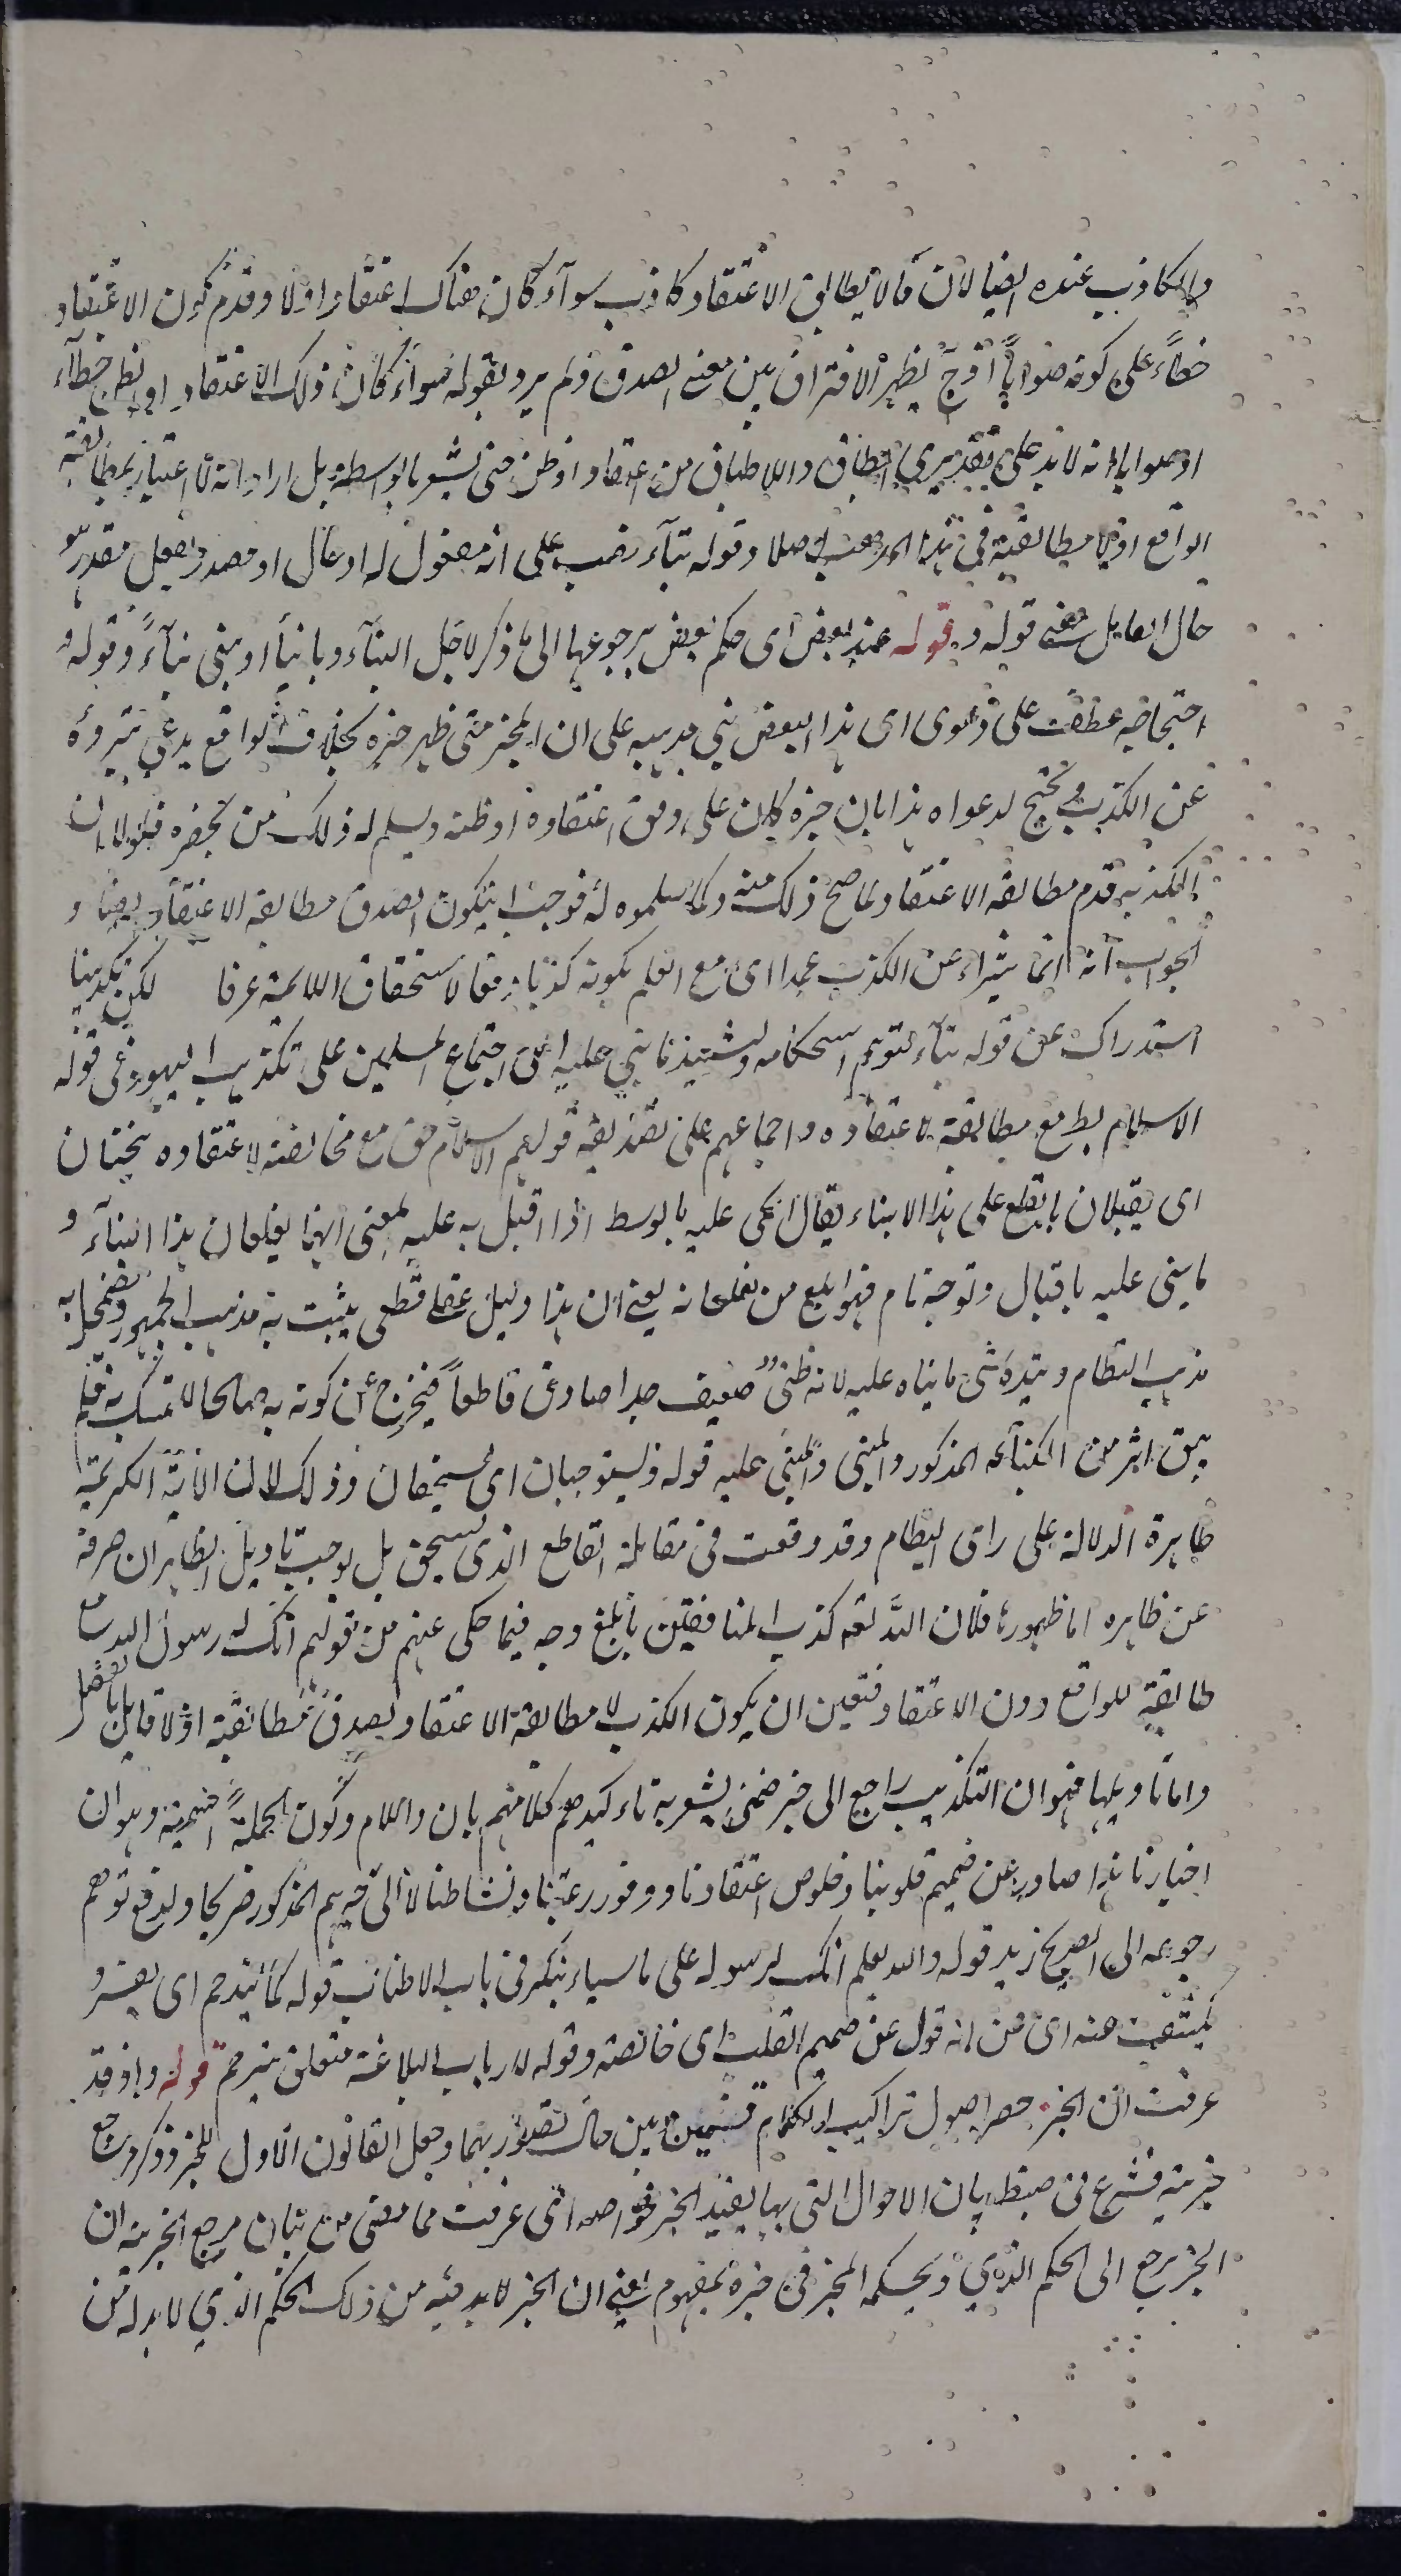 والكاذب عنده ايضا لان ما لا يطابق الاعتقاد كاذب سوآء كان هناك اعتقاد اولا وقدم كون الاعتقاد
خطآء على كونه صوابا يظهر الافتراق بين معنى الصدق ولم يرد بقوله سوآء كان ذلك الاعتقاد او الظن خطآء
او صوابا انه لا بد على تقديري انطباق واللاطباق من اعتقاد او ظن حتى يشعر بالواسطة بل اراد انه لا اعتبار بمطابقة
الواقع او لا مطابقته في هذا المذهب اصلا وقوله بنآء نصب على انه مفعول له او حال او مصدر لفعل مقدر هو
حال العامل معنى قوله و قوله عند بعض اى حكم بعض برجوعها الى ما ذكر لاجل البنآء وبانيا او بنى بنآء وقوله و
احتجاجه عطف على دعوى اى هذا البعض بنى مذهبه على ان المخبر متى ظهر خبره بخلاف الواقع يدعى تبرؤه
عن الكذب ويحتج لدعواه هذا بان خبره كان على وفق اعتقاده او ظنه ويسلم له ذلك من يحضره فلولا ان
الكذب عدم مطابقة الاعتقاد لما صح ذلك منه ولما سلموه له فوجب ان يكون الصدق مطابقة الاعتقاد ايضا و
الجواب انه انما يتبراء عن الكذب عمدا اى مع العلم بكونه كذبا دفعا لاستحقاق اللائمة عرفا لكن تكذيبنا
استدراك عن قوله بنآء لتوهم استحكامه ما بنى عليه اى اجتماع المسلمين على تكذيب اليهودى فى قوله
الاسلام بط مع مطابقة لاعتقاده واجماعهم على تصديقه قولهم الاسلام حق مع مخالفته لاعتقاده ينحيان
اى يقبلان بالقلع على هذا الابناء يقال انحى عليه بالسوط اذا اقبل به عليه بمعنى انهما يقلعان هذا البنآء و
ما بنى عليه باقبال وتوجه تام فهو ابلغ من يقلعانه يعنى ان هذا دليل عقلى قطعى يثبت به مذهب الجمهور ويضمحل به
مذهب النظام ما بناه عليه لانه ظنى ضعيف جدا صادف قاطعا فيخرج عن كونه به صالحا للتمسك به فلم
يبق اثر من البنآء المذكور والمبنى والمبنى عليه قوله ويستوجبان اى يستحقان وذلك لان الآية الكريمة
ظاهرة الدلالة على راى النظام وقد وقعت فى مقابلة القاطع الذى يستحق بل يوجب تاويل الظاهر ان صرفه
عن ظاهره اما ظهورها فلان الله تعه كذب المنافقين بابلغ وجه فيما حكى عنهم من قولهم انك لرسول الله مع
طابقته للواقع دون الاعتقاد فتعين ان يكون الكذب لا مطابقة الاعتقاد والصدق مطابقته اذ لا قايل بالفصل
واما تاويلها فهو ان التكذيب راجع الى خبر ضمنى يشعر به تاءكيدهم كلامهم بان واللام وكون الجملة اسمية وهو ان
اخبارنا هذا صادر عن صميم قلوبنا وخلوص اعتقادنا ووفور رغبتنا ونشاطنا لا الى خبرهم المذكور صريحا ولدفع توهم
رجوعه الى الصريح زيد قوله والله يعلم انك لرسوله على ما سياءتيك فى باب الاطناب قوله كما يترجم اى يفسر و
يكشف عنه اى من انه قول عن صميم القلب اى خالصته وقوله لارباب البلاغة متعلق بيترجم قوله واذ قد
عرفت ان الخبر حصر اصول تراكيب الكلام قسمين وبين حال تصورهما وجعل القانون الاول للخبر وذكر مرجع
خبريته فشرع فى ضبط بيان الاحوال التى بها يفيد الخبر خواصه التى عرفت مما مضى من بيان مرجع الخبرية ان
الخبر يرجع الى الحكم الذي يحكمه المخبر فى خبره بمفهوم يعنى ان الخبر لا بد فيه من ذلك الحكم الذي لا بد له من